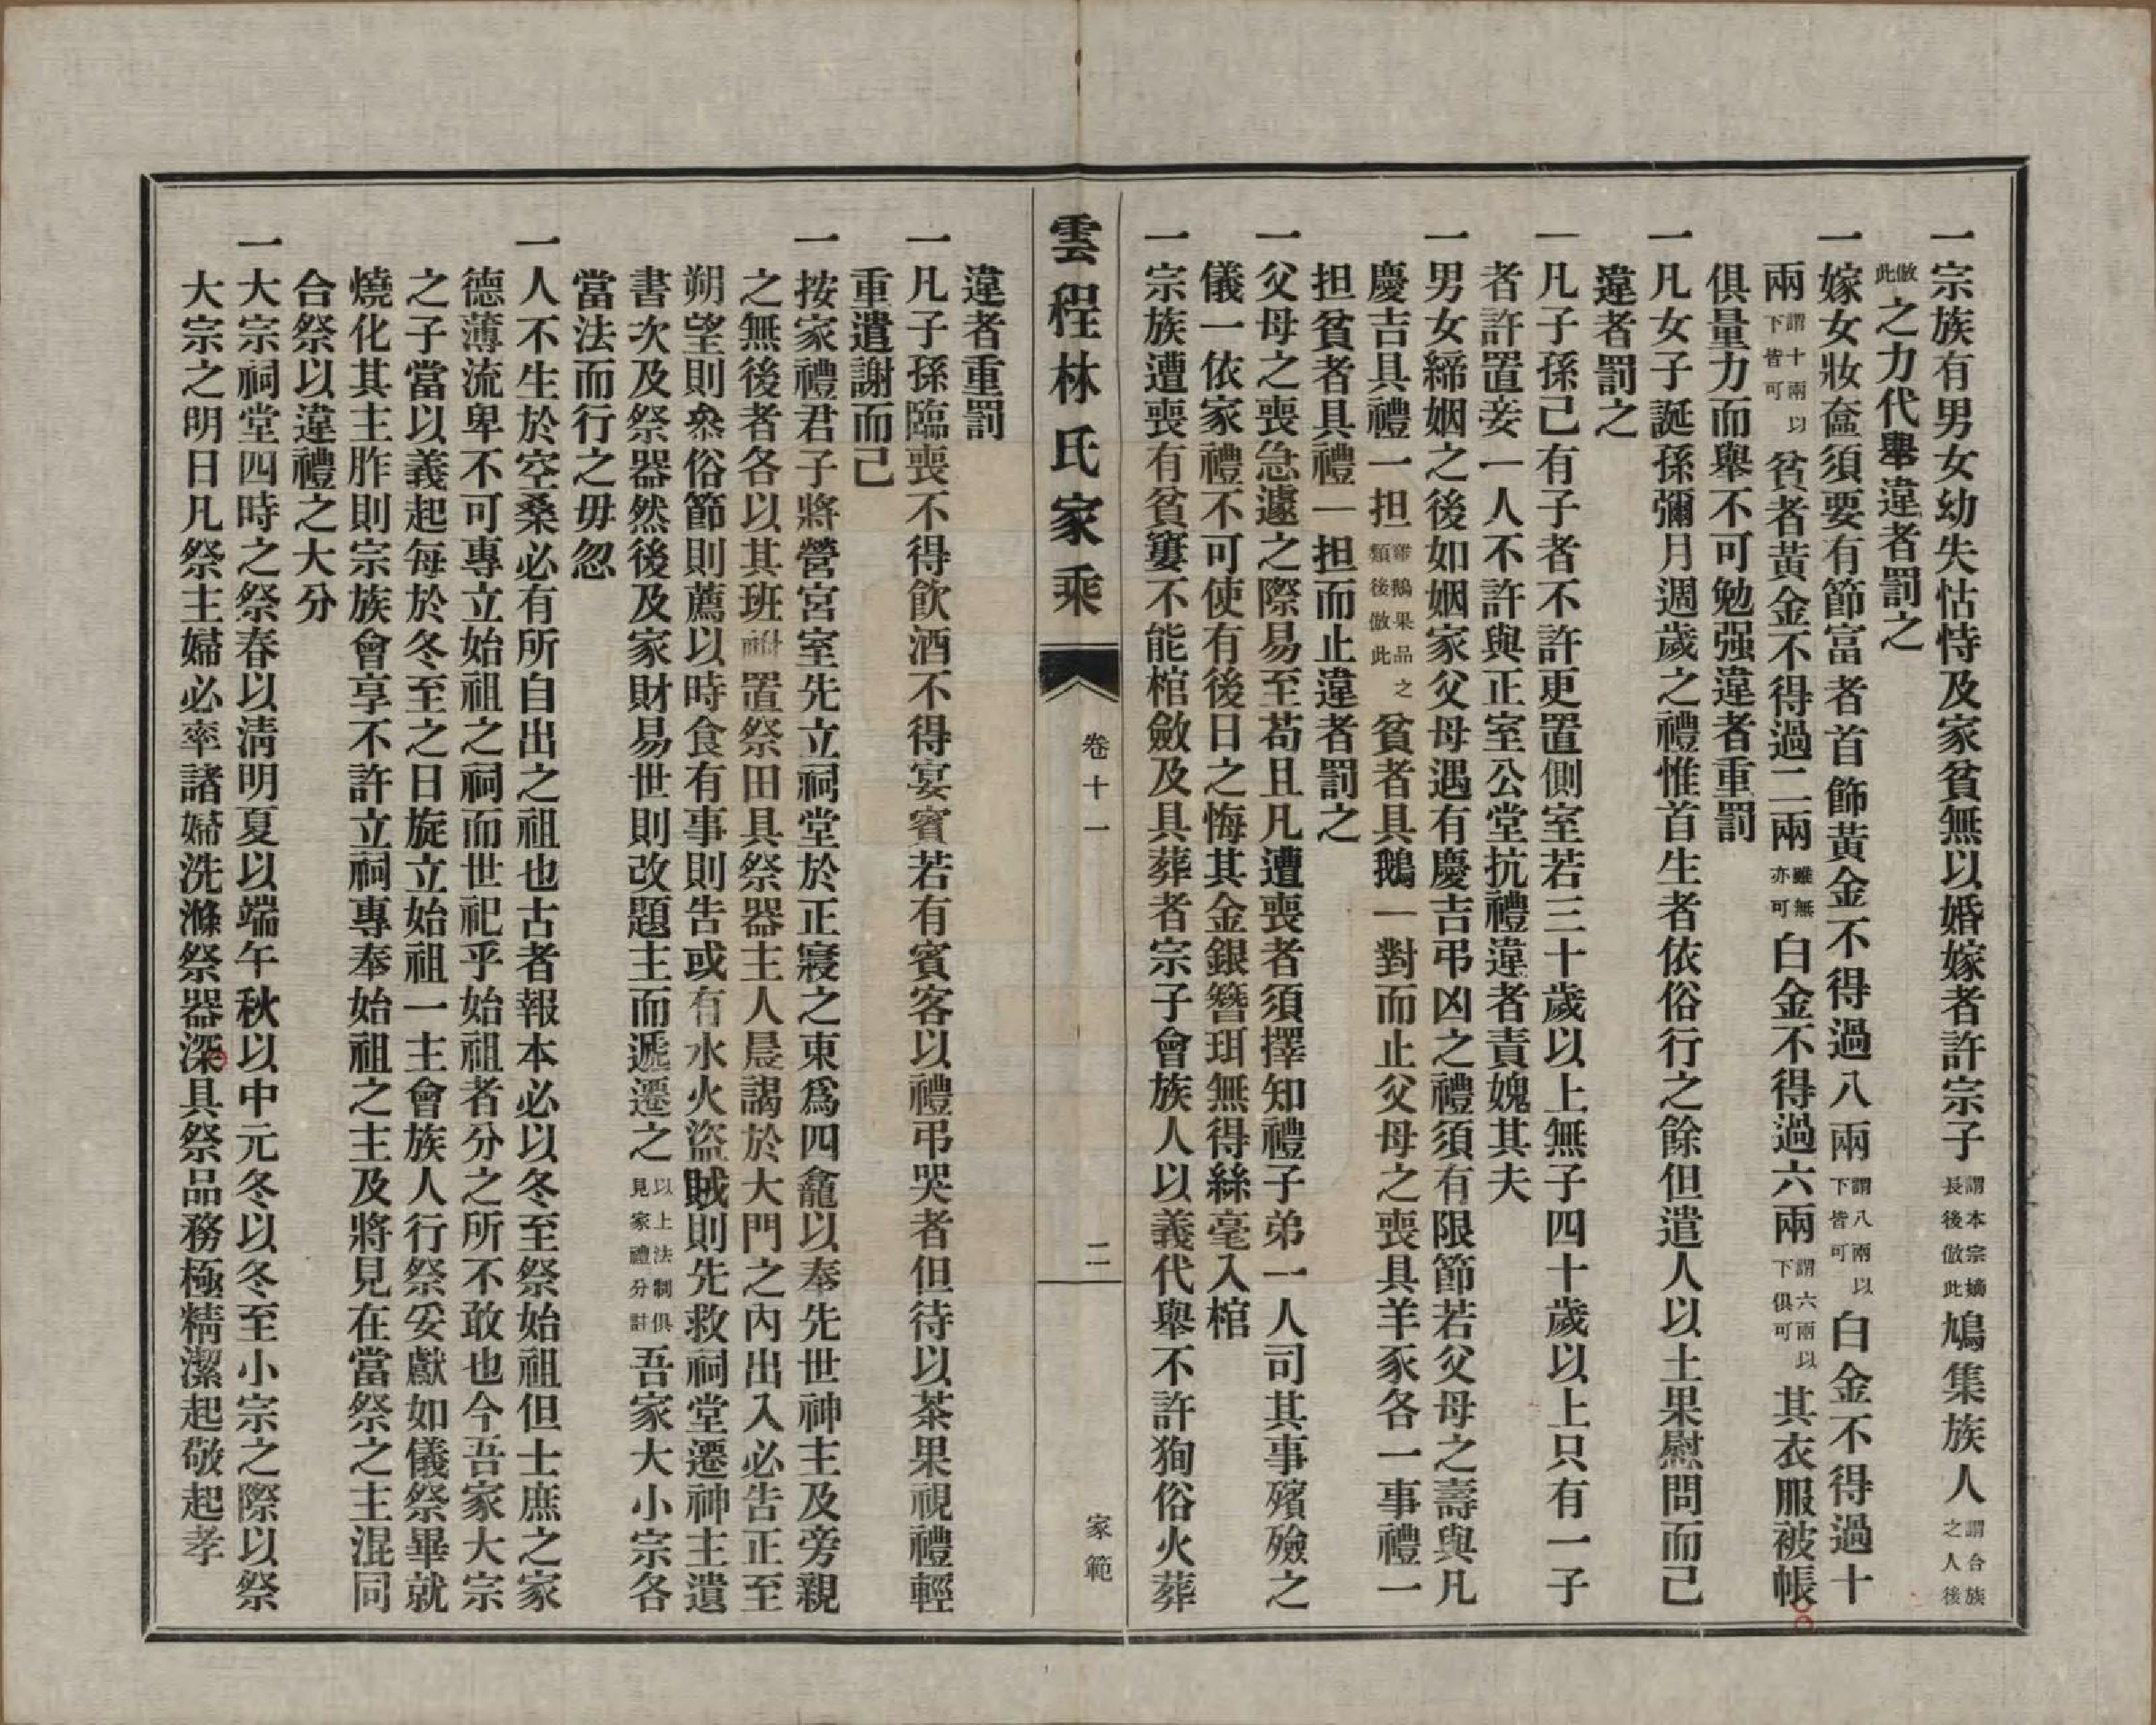 一宗族有男女幼失怙恃及家貧無以婚嫁者許宗子謂本宗嫡長後倣此鳩集族人謂合族之人後
倣此之力代舉違者罰之
一嫁女妝奩須要有節富者首飾黃金不得過八兩謂八兩以下皆可白金不得過十
兩謂十兩以下皆可貧者黃金不得過二兩雖無亦可白金不得過六兩謂六兩以下俱可其衣服被帳
俱量力而舉不可勉强違者重罰
一凡女子誕孫彌月週歲之禮惟首生者依俗行之餘但遣人以土果慰問而已
違者罰之
一凡子孫已有子者不許更置側室若三十歲以上無子四十歲以上只有一子
者許置妾一人不許與正室公堂抗禮違者責媿其夫
一男女締姻之後如姻家父母遇有慶吉弔凶之禮須有限節若父母之壽與凡
慶吉具禮一担雞鵝果品之類後倣此貧者具鵝一對而止父母之喪具羊豕各一事禮一
担貧者具禮一担而止違者罰之
一父母之喪急遽之際易至苟且凡遭喪者須擇知禮子弟一人司其事殯殮之
儀一依家禮不可使有後日之悔其金銀簪珥無得絲毫入棺
一宗族遭喪有貧窶不能棺斂及具葬者宗子會族人以義代舉不許狥俗火葬
雲程林氏家乘
卷十一
二
家範
違者重罰
一凡子孫臨喪不得飲酒不得宴賓若有賓客以禮弔哭者但待以茶果視禮輕
重遣謝而已
一按家禮君子將營宮室先立祠堂於正寢之東爲四龕以奉先世神主及旁親
之無後者各以其班祔置祭田具祭器主人晨謁於大門之內出入必告正至
朔望則叅俗節則薦以時食有事則告或有水火盜賊則先救祠堂遷神主遺
書次及祭器然後及家財易世則改題主而遞遷之以上法制俱見家禮分註吾家大小宗各
當法而行之毋忽
一人不生於空桑必有所自出之祖也古者報本必以冬至祭始祖但士庶之家
德薄流卑不可專立始祖之祠而世祀乎始祖者分之所不敢也今吾家大宗
之子當以義起每於冬至之日旋立始祖一主會族人行祭妥獻如儀祭畢就
燒化其主胙則宗族會享不許立祠專奉始祖之主及將見在當祭之主混同
合祭以違禮之大分
一大宗祠堂四時之祭春以清明夏以端午秋以中元冬以冬至小宗之際以祭
大宗之明日凡祭主婦必率諸婦洗滌祭器深具祭品務極精潔起敬起孝